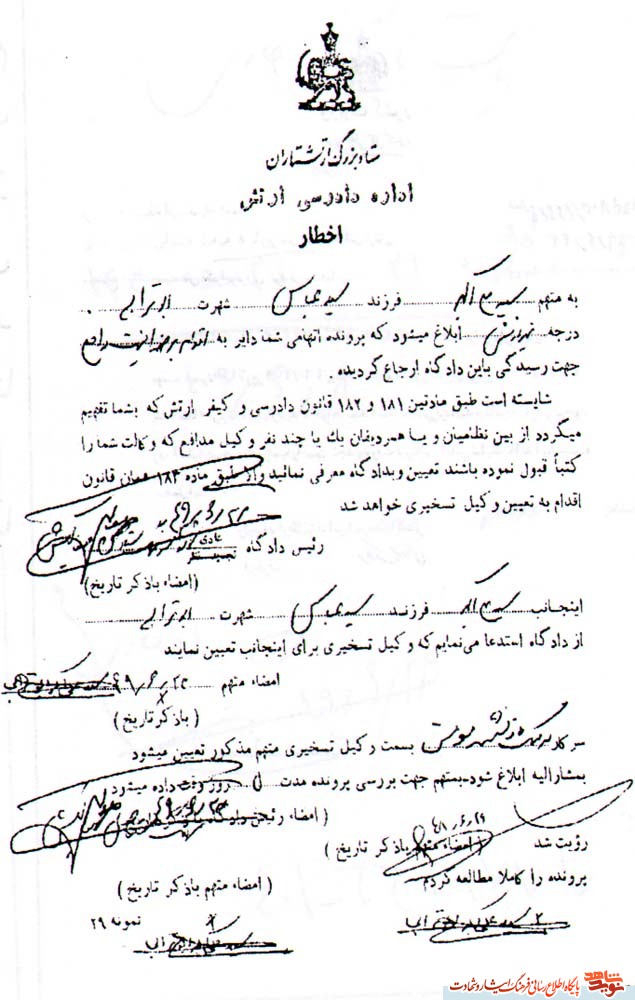 ستاد بزرگ ارتشتاران
اداره دادرسی ارتش
اخطار
به متهم سید علی اکبر فرزند سید عباس شهرت ابوترابی
درجه غیرنظامی ابلاغ میشود که پرونده اتهامی شما دایر به اقدام بر ضد امنیت
جهت رسیدگی باین دادگاه ارجاع گردیده .
شایسته است طبق مادتین ۱۸۱ و ۱۸۲ قانون دادرسی و کیفر ارتش که بشما تفهیم
میگردد از بین نظامیان و یا همردیفان یك یا چند نفر وکیل مدافع که وکالت شما را
کتباً قبول نموده باشند تعیین وبدادگاه معرفی نمائید والا طبق ماده ۱۸۳ همان قانون
اقدام به تعیین وکیل تسخیری خواهد شد
رئیس دادگاه عادی
(امضاء باذکر تاریخ)
اینجانب سید علی اکبر فرزند سید عباس شهرت ابوترابی
از دادگاه استدعا می‌نمایم که وکیل تسخیری برای اینجانب تعیین نمایند
امضاء متهم
(باذکر تاریخ)
سرکار بسمت وکیل تسخیری متهم مذکور تعیین میشود
بمشارالیه ابلاغ شود-بمتهم جهت بررسی پرونده مدت روز وقت داده میشود
(امضاء رئیس دادگاه
رؤیت شد (امضاء متهم باذکر تاریخ)
پرونده را کاملا مطالعه کردم
(امضاء متهم باذکر تاریخ)
نمونه ۲۹
نوید شاهد پایگاه اطلاع رسانی فرهنگ ایثار و شهادت